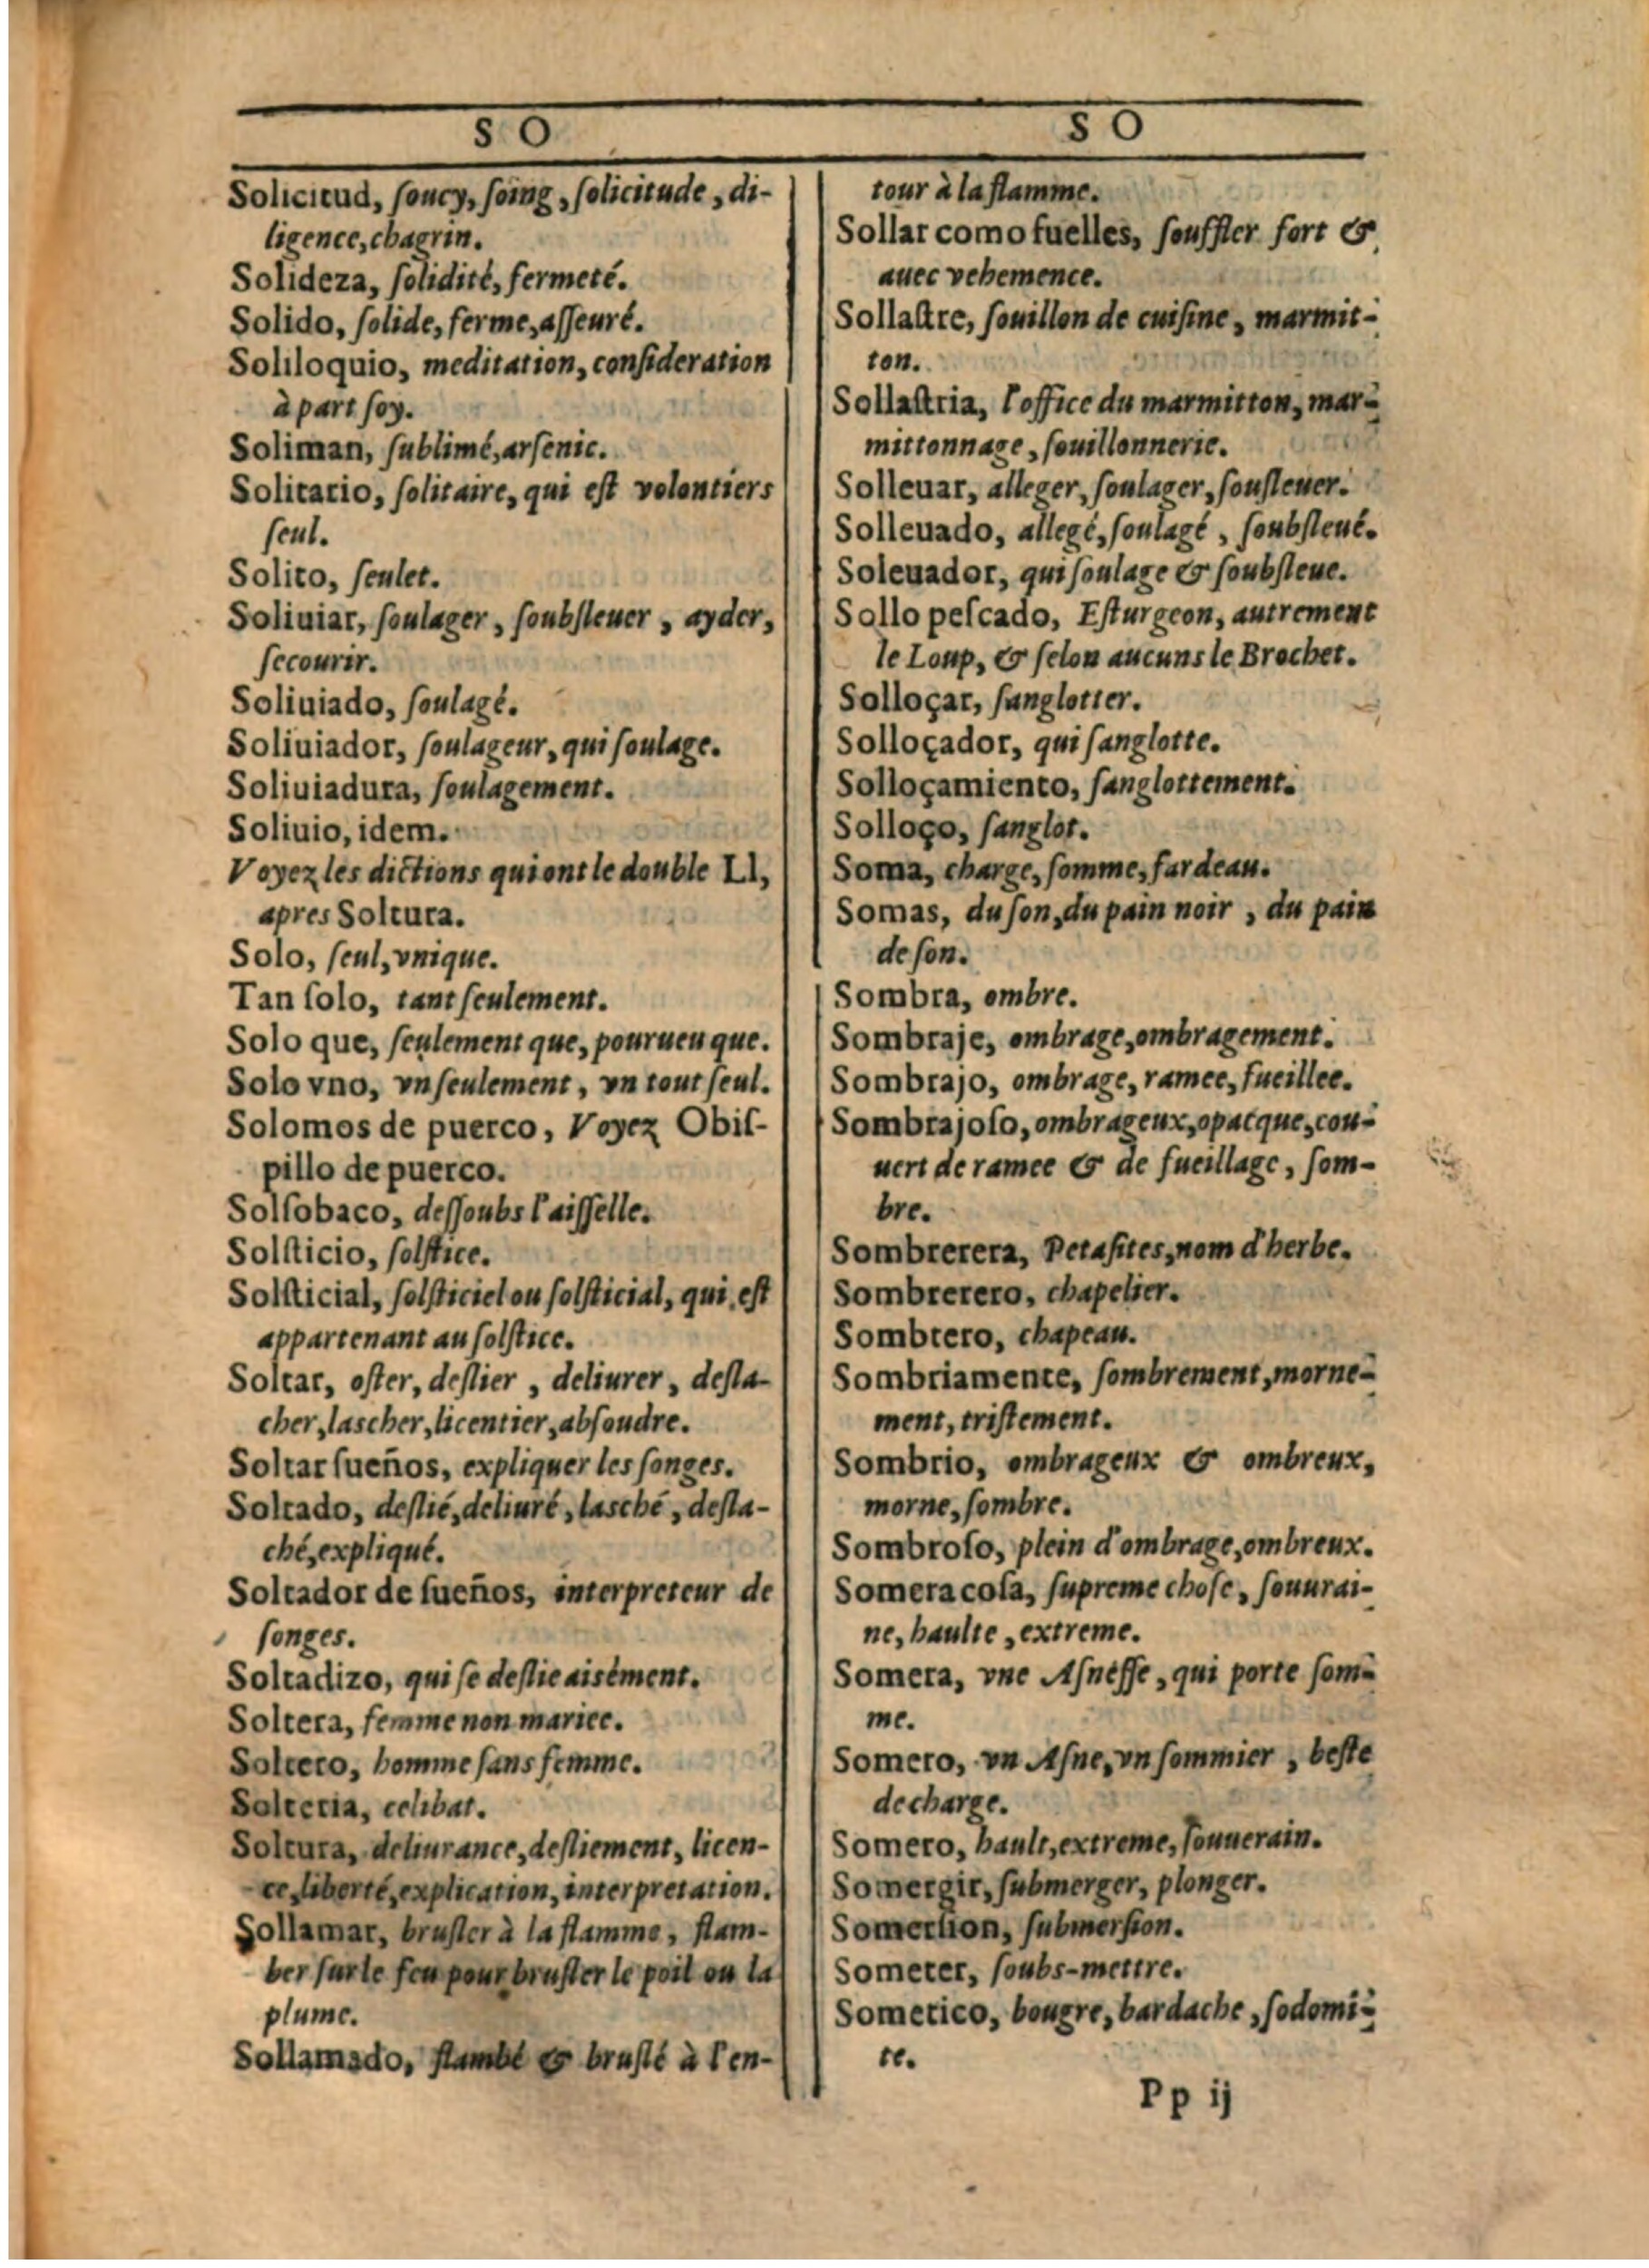 S O
Solicitud, ſoucy, ſoing, ſolicitude, di-
ligence, chagrin.
Solideza, ſolidité, fermeté.
Solido, ſolide, ferme, aſſeuré.
Soliloquio, meditation, conſideration
à part ſoy.
Soliman, ſublimé, arſenic.
Solitario, ſolitaire, qui eſt volontiers
ſeul.
Solito, ſeulet.
Soliuiar, ſoulager, ſoubſleuer, ayder,
ſecourir.
Soliuiado, ſoulagé.
Soliuiador, ſoulageur, qui ſoulage.
Soliuiadura, ſoulagement.
Soliuio, idem.
Voyez les dictions qui ont le double Ll,
apres Soltura.
Solo, ſeul, vnique.
Tan ſolo, tant ſeulement.
Solo que, ſeulement que, pourueu que.
Solo vno, vn ſeulement, vn tout ſeul.
Solomos de puerco, Voyez Obiſ-
pillo de puerco.
Solſobaco, deſſoubs l'aiſſelle.
Solſticio, ſolſtice.
Solſticial, ſolſticiel ou ſolſticial, qui eſt
appartenant au ſolſtice.
Soltar, oſter, deſlier, deliurer, deſta-
cher, laſcher, licentier, abſoudre.
Soltar ſueños, expliquer les ſonges.
Soltado, deſlié, deliuré, laſché, deſta-
ché, expliqué.
Soltador de ſueños, interpreteur de
ſonges.
Soltadizo, qui ſe deſlie aisément.
Soltera, femme non mariee.
Soltero, homme ſans femme.
Solteria, celibat.
Soltura, deliurance, deſliement, licen-
ce, liberté, explication, interpretation.
Sollamar, bruſler à la flamme, flam-
ber ſur le feu pour bruſler le poil ou la
plume.
Sollamado, flambé & bruſlé à l'en-
S O
tour à la flamme.
Sollar como fuelles, ſouffler fort &
auec vehemence.
Sollaſtre, ſouillon de cuiſine, marmit-
ton.
Sollaſtria, l'office du marmitton, mar-
mittonnage, ſouillonnerie.
Solleuar, alleger, ſoulager, ſouſleuer.
Solleuado, allegé, ſoulagé, ſoubſleué.
Soleuador, qui ſoulage & ſoubſleue.
Sollo peſcado, Eſturgeon, autrement
le Loup, & ſelon aucuns le Brochet.
Solloçar, ſanglotter.
Solloçador, qui ſanglotte.
Solloçamiento, ſanglottement.
Solloço, ſanglot.
Soma, charge, ſomme, fardeau.
Somas, du ſon, du pain noir, du pain
de ſon.
Sombra, ombre.
Sombraje, ombrage, ombragement.
Sombrajo, ombrage, ramee, fueillee.
Sombrajoſo, ombrageux, opacque, cou-
uert de ramee & de fueillage, ſom-
bre.
Sombrerera, Petaſites, nom d'herbe.
Sombrerero, chapelier.
Sombrero, chapeau.
Sombriamente, ſombrement, morne-
ment, triſtement.
Sombrio, ombrageux & ombreux,
morne, ſombre.
Sombroſo, plein d'ombrage, ombreux.
Somera coſa, ſupreme choſe, ſouurai-
ne, haulte, extreme.
Somera, vne Aſneſſe, qui porte ſom-
me.
Somero, vn Aſne, vn ſommier, beſte
de charge.
Somero, hault, extreme, ſouuerain.
Somergir, ſubmerger, plonger.
Somerſion, ſubmerſion.
Someter, ſoubs-mettre.
Sometico, bougre, bardache, ſodomi-
te.
Pp ij